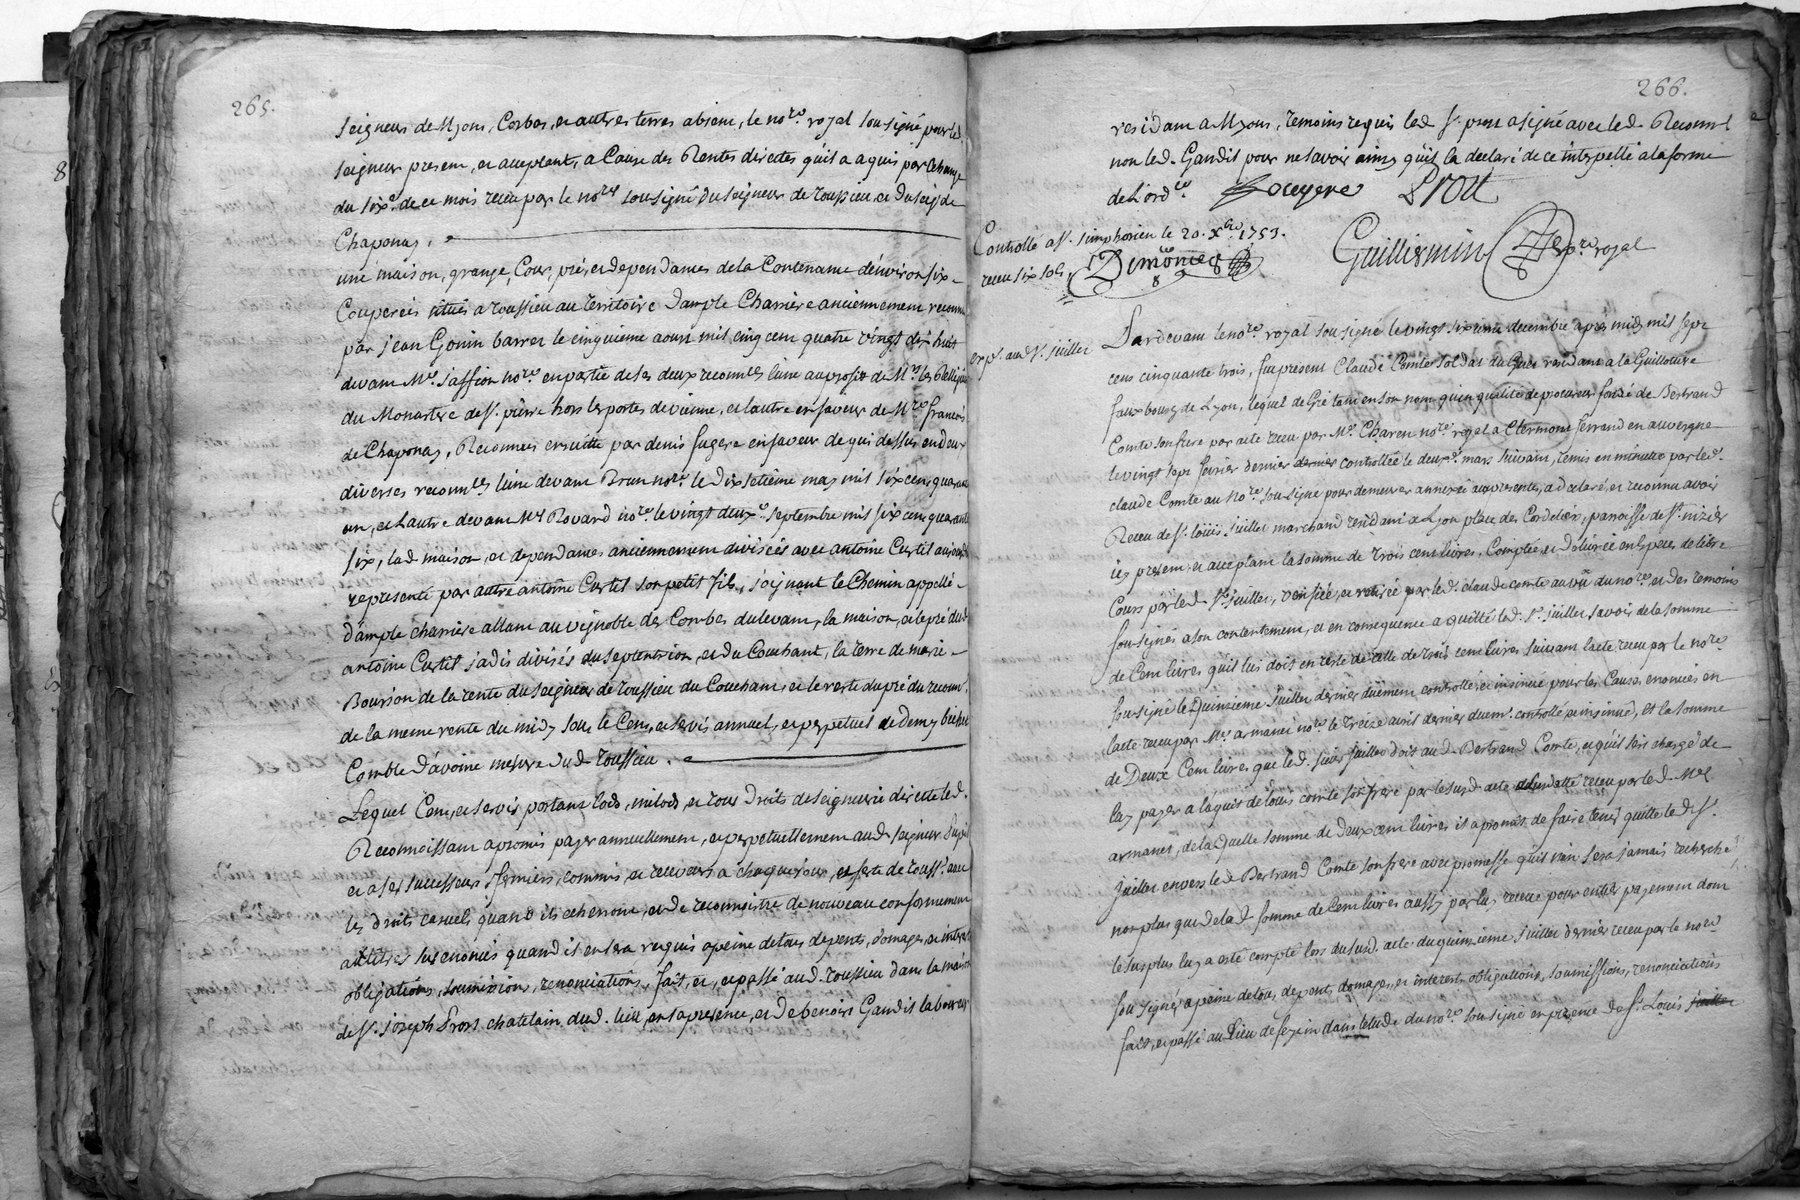 265.
seigneur de Myons, Corbas, et autres terres absent, le no.re royal sousigné pour led.
seigneur present, et acceptant, a Cause des Rentes directes qu'il a aquis par Echange
du six.e de ce mois receu par le no.re sousigné du seigneur de toussieu et du seig.r de
Chaponay.
une maison, grange, Cour, pré, et dependances de la Contenance d'environ six
Couperées situés a toussieu au territoire d'ample Charriere anciennement reconnu
par jean Gonin barrer le cinquieme aoust mil cinq cent quatre vingt dix huit
devant M.e jassion no.re en partie de ses deux reconn.ces l'une au profit de M.rs les Religieux
du Monastere de S.t pierre hors les portes de vienne, et l'autre en faveur de M.re francois
de Chaponay, Reconnues ensuitte par denis fugere en faveur de qui dessus en deux
diverses reconn.ces l'une devant Brun no.re le dix setieme may mil six cent quarante
un, et l'autre devant M.e Rovard no.re le vingt deux.e septembre mil six cent quarante
six, lad. maison, et dependances anciennement divisées avec antoine Curtil aujourd'h.
representé par autre antoine Curtil son petit fils, joignant le Chemin appellé
d'ample charriere allant au vignoble des Combes du levant, la maison, et le pré dud.
antoine Curtil jadis divisés du septentrion, et du Couchant, la terre de marie
Bourion de la rente du seigneur de toussieu du Couchant, et le reste du pré du reconn.
de la meme rente du midy sous le Cens, et servis annuel, et perpetuel de demy bichet
Comble d'avoine mesure dud. toussieu.
Lequel Cens, et servis portant lods, milods, et tous droits de seigneurie directe led.
Reconnoissant a promis payer annuellement, et perpetuellement aud. seigneur
et a ses successeurs, fermiers, commis et receveurs a chaque jour, et feste de touss.ts avec
les droits casuels quand ils echerront, et de reconnoistre de nouveau conformement
aux titres sus enoncés quand il en sera requis a peine de tous depens, domages, et interets
obligations, soumissions, renonciations, fait, et, et passé aud. toussieu dans la maison
de S.r joseph Prost chatelain dud. lieu, en sa presence, et de benoist Gandit laboureur
266.
residant a Myons, temoins requis led. S.r prost a signé avec led. Reconn.t
non led. Gandit pour ne savoir ainsy qu'il l'a declaré de ce interpellé a la forme
de l'ord.ce Prost
Controllé a S.t simphorien le 20. X.bre 1753.
receu six sols
Guilliermin no.re royal
exp.é aud. S.r juillet
Pardevant le no.re royal sousigné le vingt six decembre apres midy mil sept
cens cinquante trois, fut present Claude Comte soldat du Guet residant a la Guillotiere
fauxbourg de Lyon, lequel de gré tant en son nom qu'en qualité de procureur fondé de Bertrand
Comte son frere par acte receu par M.e Charen no.re royal a Clermont ferrand en auvergne
le vingt sept fevrier dernier controllée le deux.e mars suivant, remis en minutte par led.
claude Comte au no.re sousigné pour demeurer annexé aux presentes, a declaré, et reconnu avoir
Receu de S.r louis juillet marchand residant a Lyon place des Cordeliers, parroisse de S.t nizier
icy present, et acceptant la somme de trois cent livres, Comptée, et delivrée en Especes de libre
Cours par led. S.r juillet, verifiée, et retirée par led. claude comte au vû du no.re, et des temoins
sousignés a son contentement, et en consequence a quitté led. S.r juillet savoir de la somme
de Cent livres qu'il luy doit en reste de celle de trois cent livres suivant l'acte receu par le no.re
sousigné le Quinzieme juillet dernier düement controllé, et insinué pour les Causes enoncées en
l'acte receu par M.e armanet no.re le treize avril dernier duem.t controllé et insinué, et la somme
de Deux Cent livres que led. sieur juillet doit aud. Bertrand Comte, et qu'il s'est chargé de
luy payer a l'aquit de louis comte son frere par le susd. acte receu par led. M.e
armanet, de laquelle somme de deux cent livres il a promis de faire tenir quitte led. S.r
juillet envers led. Bertrand Comte son frere avec promesse qu'il n'en sera jamais recherché,
non plus que de lad. somme de Cent livres aussy par luy receue pour entier payement dont
le surplus luy a esté compté lors du susd. acte du quinzieme juillet dernier receu par le no.re
sousigné, a peine de tous depens, domages, et interets, obligations, soumissions, renonciations
fait, et passé au Lieu de feyzin dans l'etude du no.re sousigné en presence de S.r Louis